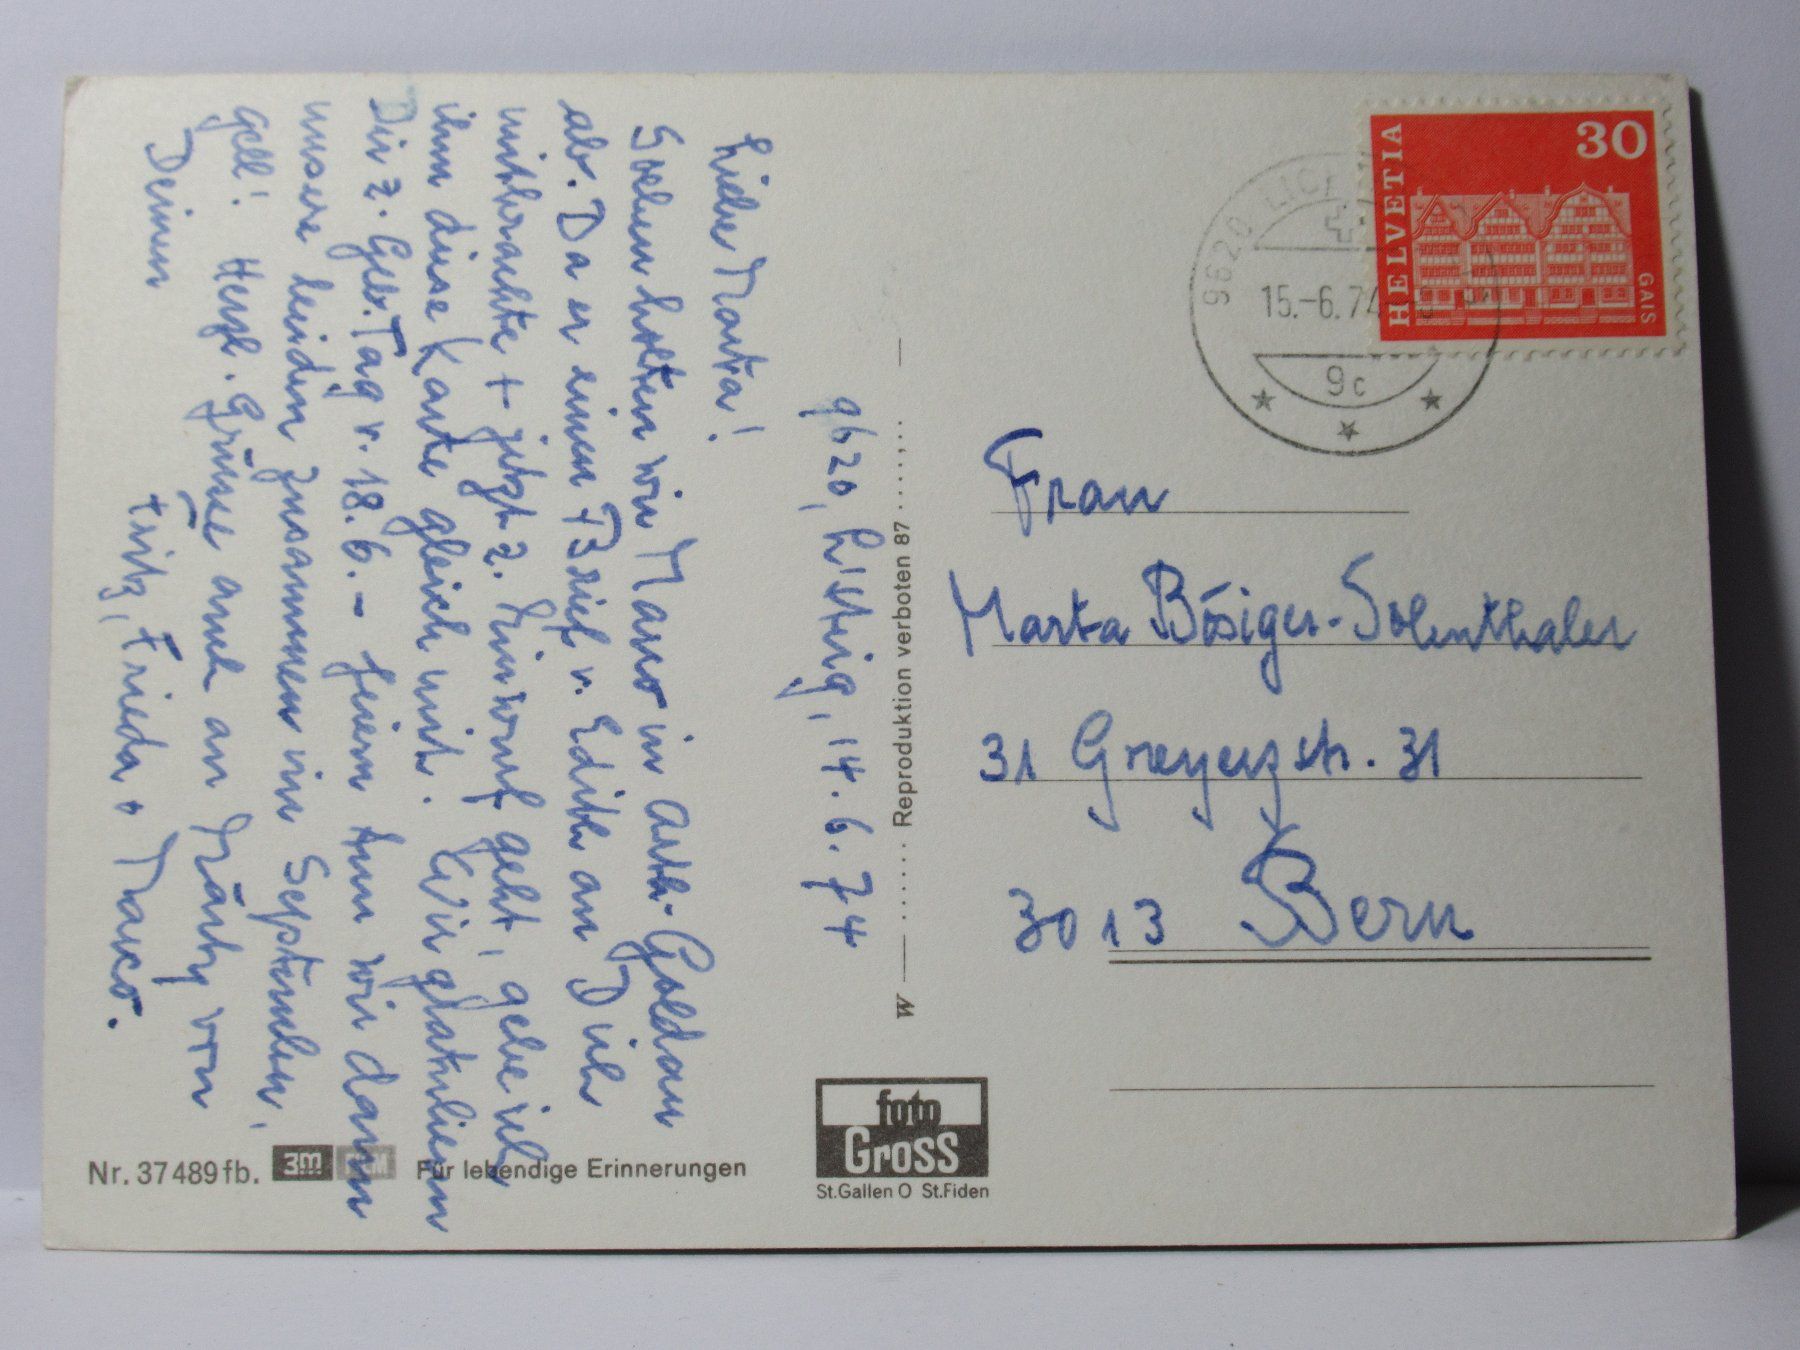 9620, Listig, 14. 6. 74
Liebe Marta!
Soeben holten wir Marco in Arth-Goldau
ab. Da er einen Brief v. Edith an Dich
mitbrachte + jetzt z. Einwurf geht, gebe ich
ihm diese Karte gleich mit. Wir gratulieren
Dir z. Geb. Tag v. 18. 6. – feiern tun wir dann
unsere beiden zusammen im September,
gell! Herzl. Grüsse auch an Märty von
Deinen
Fritz, Frieda + Marco.
Frau
Marta Bösiger-Solenthaler
31 Greyerzstr. 31
3013 Bern
HELVETIA
30
GAIS
9620
15.-6.74
9c
w
Reproduktion verboten 87
foto
Gross
St.Gallen O St.Fiden
Nr. 37489fb. 3m Für lebendige Erinnerungen